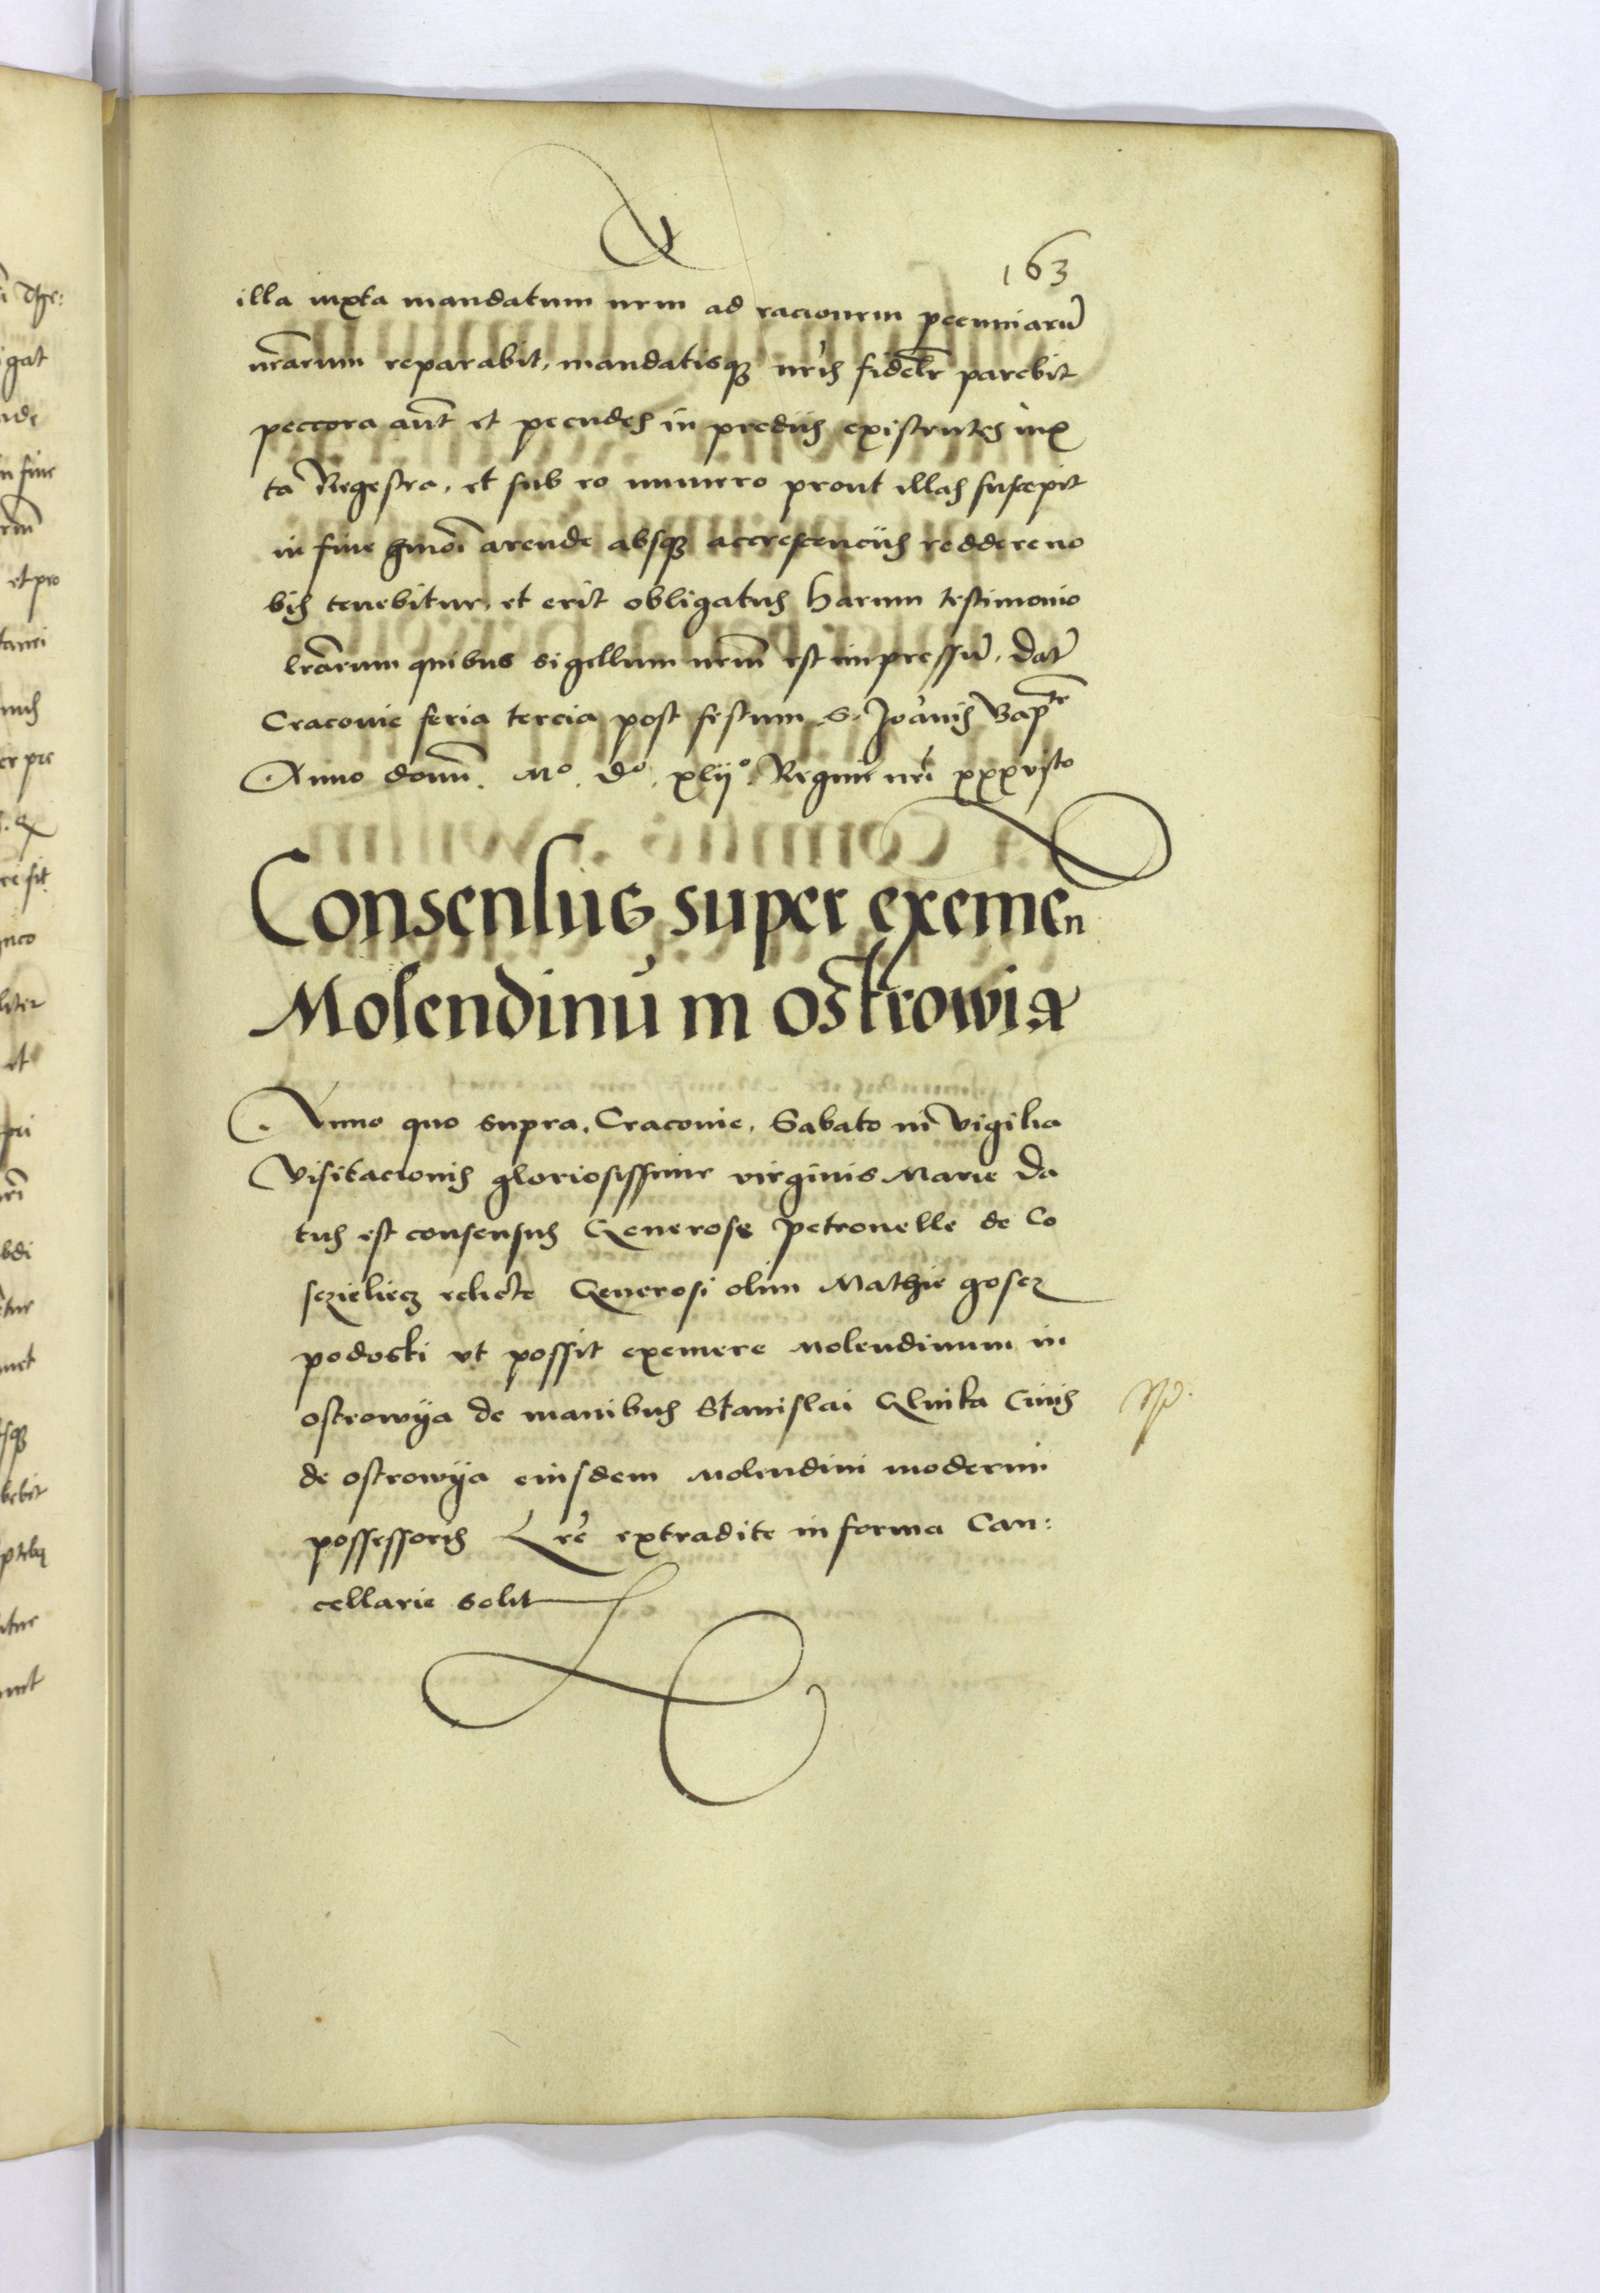 163
illa iuxta mandatum nrm ad racionem pecuniarũ
nrãrum reparabit, mandatisqȝ nrĩs fidelr parebit
peccora aũt et pecudes in prediis existentes iux
ta Regestra, et sub eo numero prout illas suscepit
in fine hmõi arende absqȝ accrescenciis reddere no
bis tenebitur, et erit obligatus Harum testimonio
lrãrum quibus sigillum nrm̃ est impressũ, Dat
Cracovie feria tercia post festum S. Joãnis Bapte
Anno domĩ. Mº. Dº. xlijº. Regni nrĩ xxxvjto
Consensus super exemen
Molendinũ in Ostrowia
Anno quo supra, Cracovie, Sabato in Vigilia
Visitacionis gloriosissime virginis Marie Da
tus est consensus Generose Petronelle de Co
sczieliecz relicte Generosi olim Mathie Goscz
podoski ut possit exemere Molendinum in
Ostrowya de manibus Stanislai Glinka Civis
de Ostrowya eiusdem Molendini moderni
possessoris Lrẽ extradite in forma Can:
cellarie solit